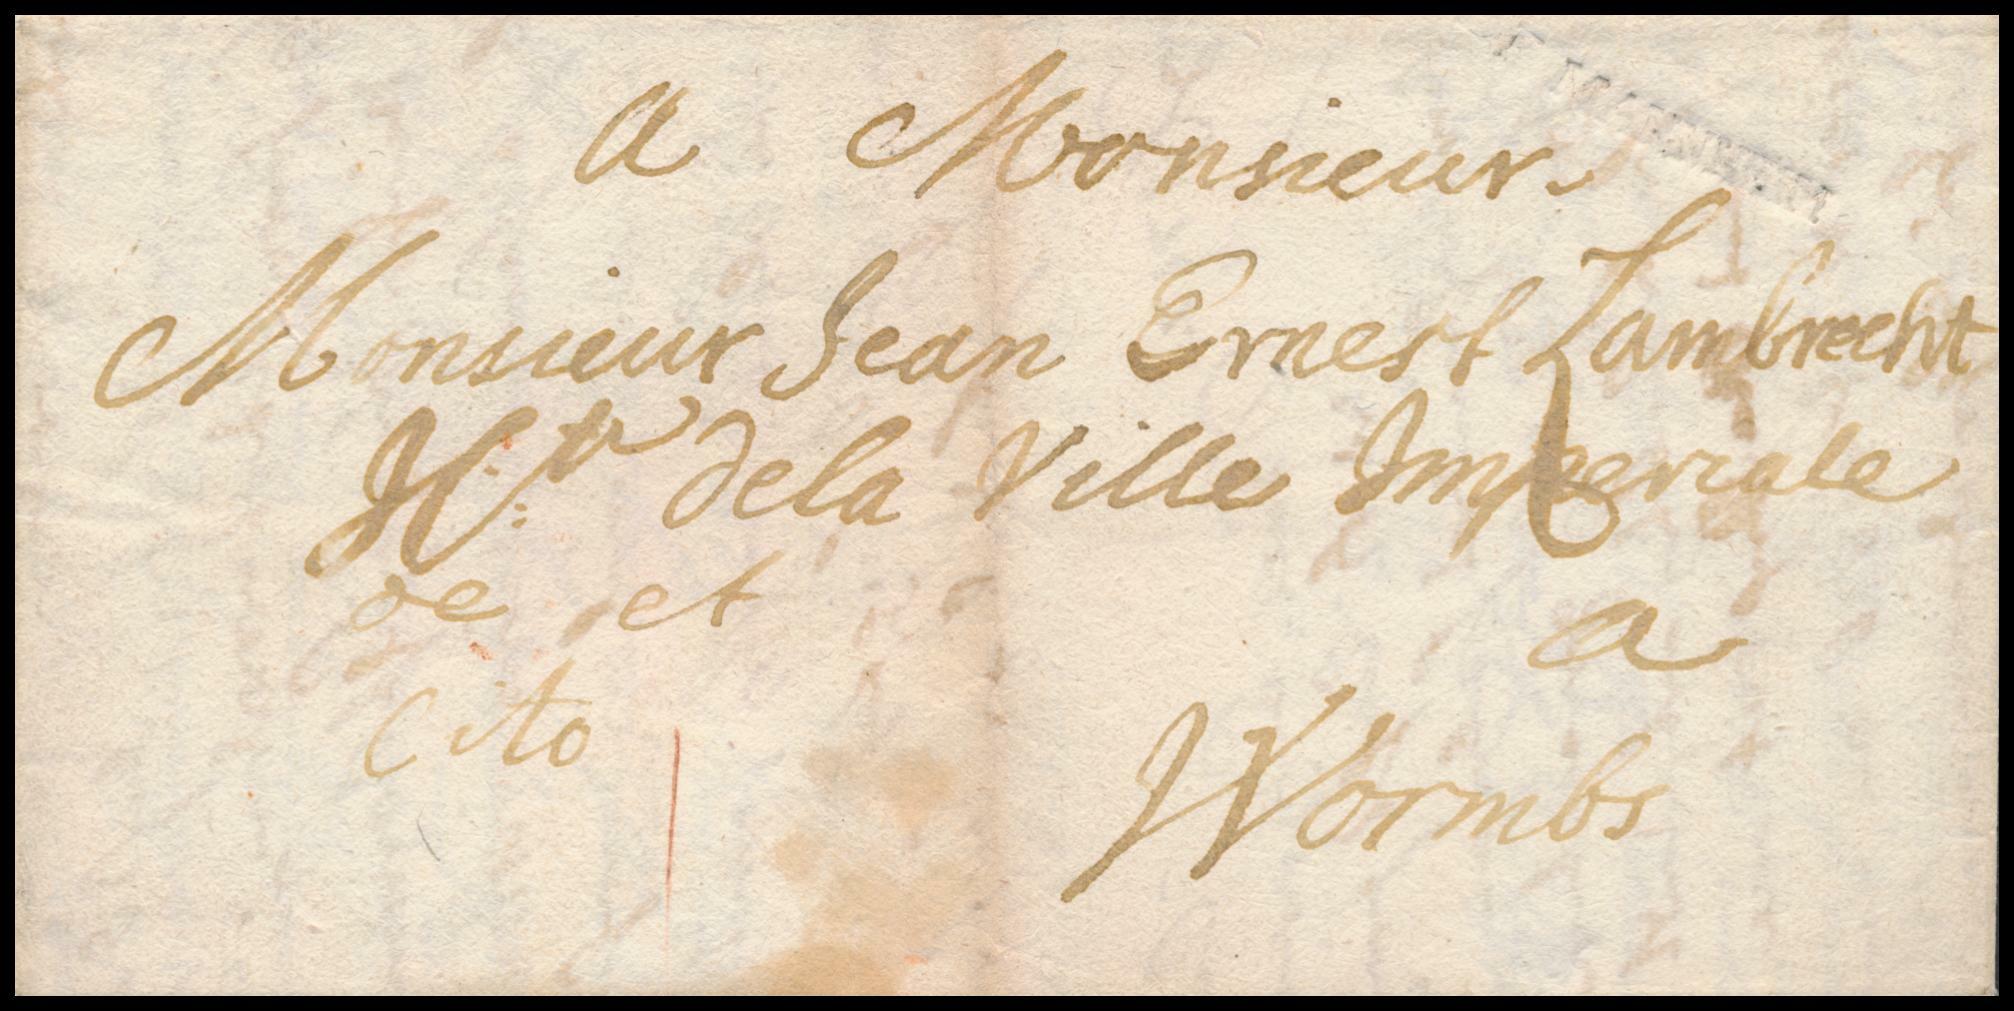 a Monsieur
Monsieur Jean Ernest Lambrecht
dela Ville Imperiale
de et
a
cito
Wormbs